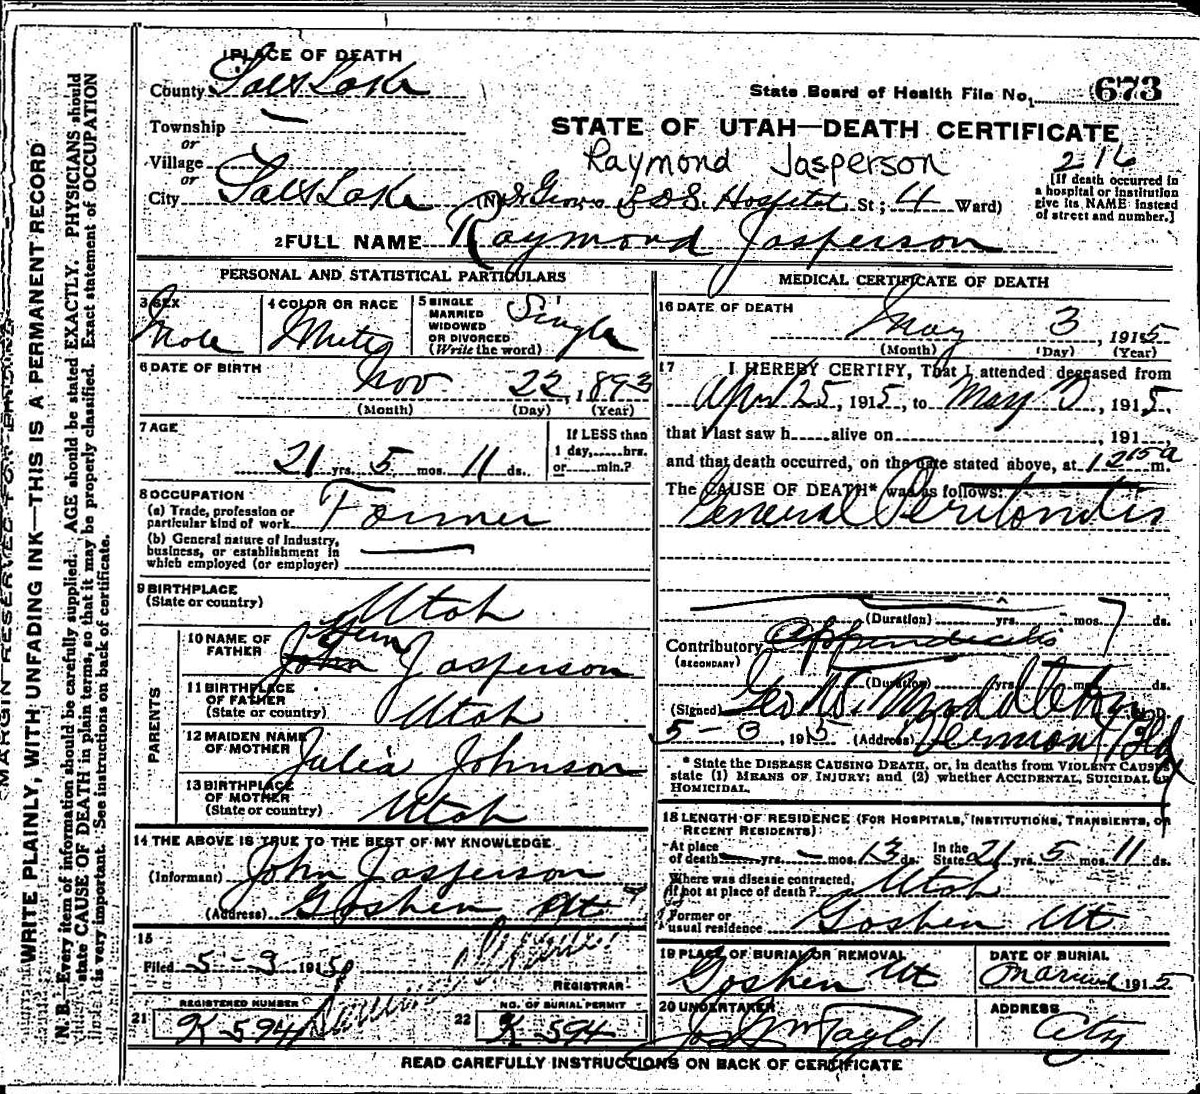 MARGIN RESERVED FOR BINDING
WRITE PLAINLY, WITH UNFADING INK—THIS IS A PERMANENT RECORD
N. B. Every item of information should be carefully supplied. AGE should be stated EXACTLY. PHYSICIANS should
state CAUSE OF DEATH in plain terms, so that it may be properly classified. Exact statement of OCCUPATION
is very important. See instructions on back of certificate.
1 PLACE OF DEATH
County Salt Lake
State Board of Health File No. 673
Township
or
Village
or
City Salt Lake
STATE OF UTAH—DEATH CERTIFICATE
Raymond Jasperson
216
(No. L D S. Hospital St; 4 Ward)
[If death occurred in
a hospital or institution
give its NAME instead
of street and number.]
2 FULL NAME Raymond Jasperson
PERSONAL AND STATISTICAL PARTICULARS
3 SEX
Male
4 COLOR OR RACE
White
5 SINGLE
MARRIED
WIDOWED
OR DIVORCED
(Write the word)
Single
6 DATE OF BIRTH
Nov 22, 1893
(Month) (Day) (Year)
7 AGE
21 yrs. 5 mos. 11 ds.
If LESS than
1 day, hrs.
or min.?
8 OCCUPATION
(a) Trade, profession or
particular kind of work Farmer
(b) General nature of Industry,
business, or establishment in
which employed (or employer)
9 BIRTHPLACE
(State or country)
Utah
PARENTS
10 NAME OF
FATHER
John Jasperson
11 BIRTHPLACE
OF FATHER
(State or country)
Utah
12 MAIDEN NAME
OF MOTHER
Julia Johnson
13 BIRTHPLACE
OF MOTHER
(State or country)
Utah
14 THE ABOVE IS TRUE TO THE BEST OF MY KNOWLEDGE
(Informant) John Jasperson
(Address) Goshen Ut
15
Filed 5-3 1915
REGISTRAR
REGISTERED NUMBER
21 K 594
NO. OF BURIAL PERMIT
22 K 594
MEDICAL CERTIFICATE OF DEATH
16 DATE OF DEATH
May 3, 1915
(Month) (Day) (Year)
17 I HEREBY CERTIFY, That I attended deceased from
Apr 25, 1915, to May 3, 1915,
that I last saw h alive on , 191
and that death occurred, on the date stated above, at 1215a m.
The CAUSE OF DEATH* was as follows:
General Peritonitis
(Duration) yrs. mos. 7 ds.
Contributory Appendicitis
(SECONDARY)
(Duration) yrs. mos. ds.
(Signed) Geo W. Middleton
5-3, 1915 (Address) Vermont Bld
* State the DISEASE CAUSING DEATH, or, in deaths from VIOLENT CAUSES
state (1) MEANS OF INJURY; and (2) whether ACCIDENTAL, SUICIDAL OR
HOMICIDAL.
18 LENGTH OF RESIDENCE (FOR HOSPITALS, INSTITUTIONS, TRANSIENTS, OR
RECENT RESIDENTS)
At place
of death yrs. mos. 13 ds.
In the
State 21 yrs. 5 mos. 11 ds.
Where was disease contracted,
If not at place of death? Utah
Former or
usual residence Goshen Ut
19 PLACE OF BURIAL OR REMOVAL
Goshen Ut
DATE OF BURIAL
1915
20 UNDERTAKER
Jos Wm Taylor
ADDRESS
City
READ CAREFULLY INSTRUCTIONS ON BACK OF CERTIFICATE